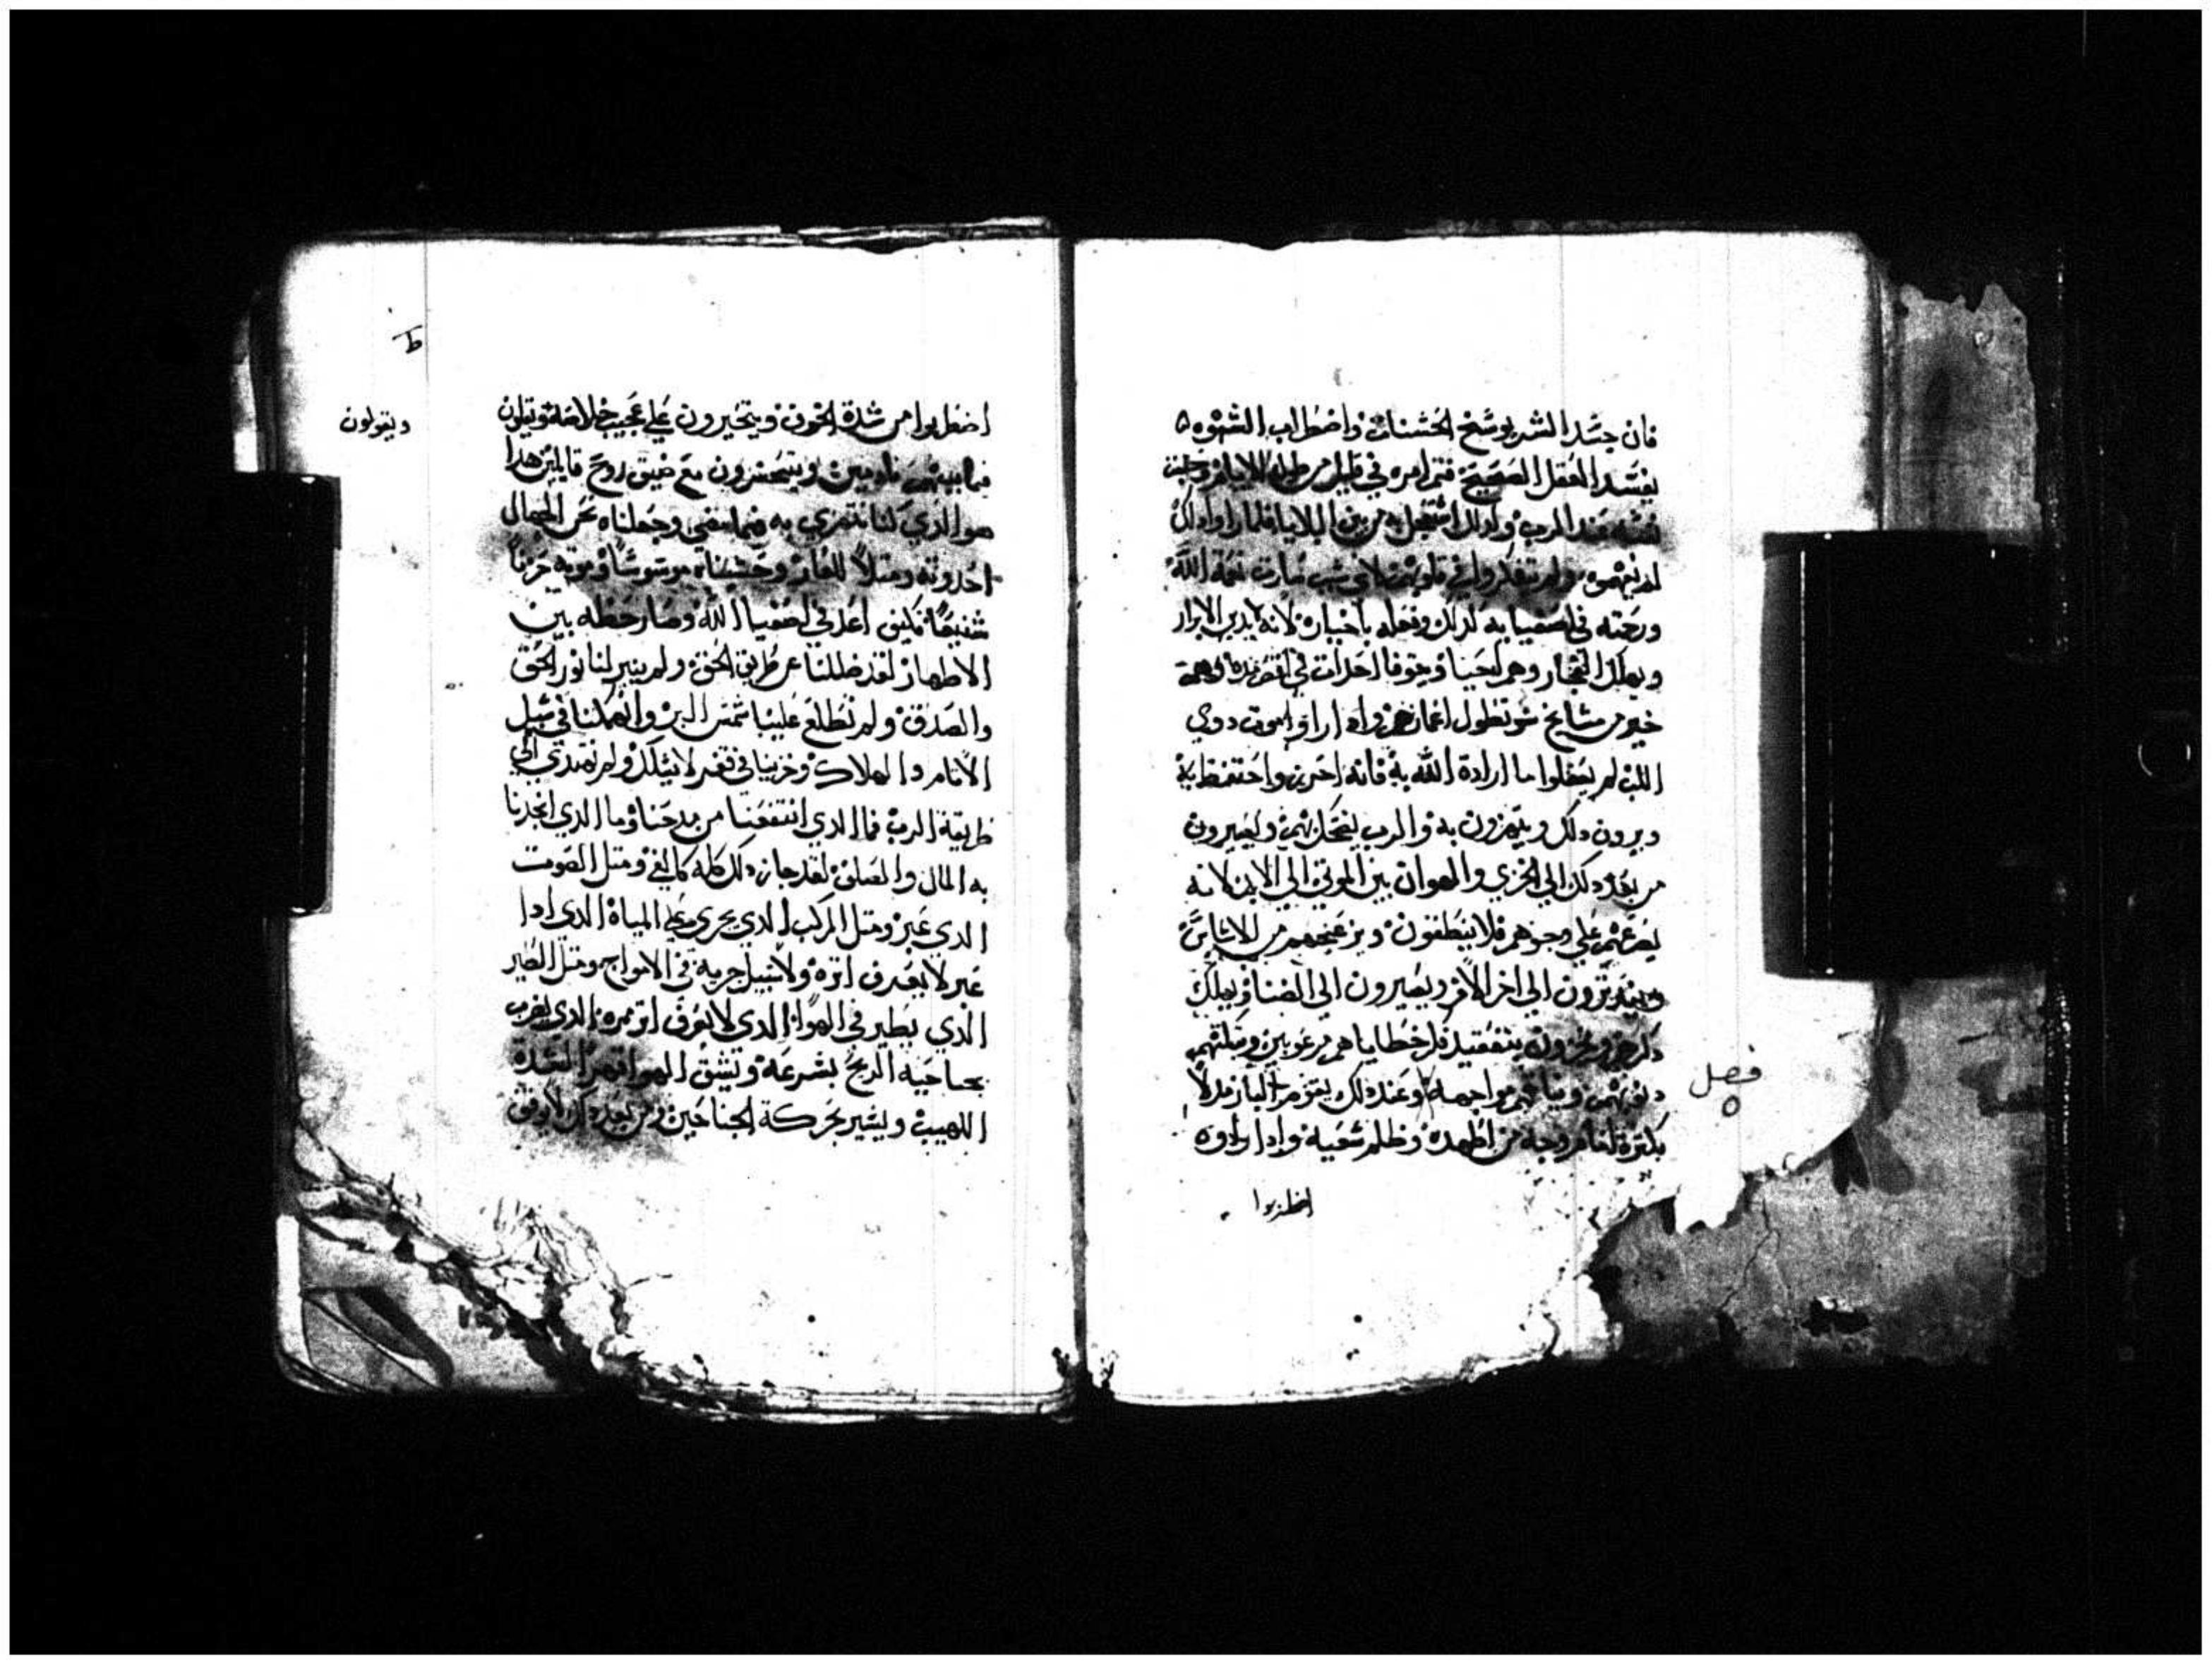 فان حسد الشرير وسخ الحسنات واضطراب الشهوه
يفسد العقل الصحيح فتم امره في قليل من طوله الايام وحلت
نفسه عند الرب ولدلك استعجل به من بين البلايا فلما راوا دلك
لم يفهموه ولم يتفكروا في قلوبهم لاي سبب صارت نعمة الله
ورحمته في اصفيايه لدلك وفعله باخياره لانه يدين الابرار
ويهلك الفجار وهم احيا وخوفا احداث في
خير من مشايخ سو تطول اعمارهم واد اراو الموت دوي
اللب لم يعقلوا ما ارادة الله به فانه احرزه واحتفظ به
ويرون دلك ويتهزون به والرب يضحك بهم وليصيرون
من بعد دلك الي الخزي والهوان بين الموتي الي الابد لانه
يصرعهم علي وجوههم فلا ينطقون ويزعجهم من الاساس
ويفترزون الي اخر الامر ويصيرون الي الضنا ويهلك
دكرهم ويحزون بتفقيد فكر خطاياهم مرعوبين وتبكتهم
دنوبهم مواجهه وعند دلك يقوم البار مدلا
بكترة امام وجه من اظهده وظلم شعبه وادا راوه
فصل
٥
اضطربوا
اضطربوا من شدة الخوف ويتحيرون علي عجيب خلاصه ويقولون
فيما بينهم نادمين ويتحسرون مع ضيق روح قايلين هدا
هو الدي كنا نتهزي به فيما مضي وجعلناه نحن الجهال
احدوته ومتلا للعار وحسبناه موسوسا وموته حزنا
شنيعا فكيف اعد في اصفيا الله وصار حظه بين
الاطهار لقد ضللنا عن طريق الحق ولم ينير لنا نور الحق
والصدق ولم تطلع علينا شمس البر وانهمكنا في سبل
الاتام والهلاك وخزينا في قفر لا يسلك ولم نهتدي الي
طريقة الرب فما الدي انتفعنا من مدحنا وما الدي انجدنا
به المال والصلف لقد جاز دلك كله كالفي ومتل الصوت
الدي عبر ومتل المركب الدي يجري علي المياة الدي ادا
عبر لا يعرف اتره ولا سبيل جريه في الامواج ومتل الطير
الدي يطير في الهوا الدي لا يعرف اتر ممره الدي يضرب
بجناحيه الريح بسرعه وتشق الهوا قهرا لشدة
اللهيب ويسير بحركة الجناحين ومن بعد دلك لا يوقف
ط
ويقولون